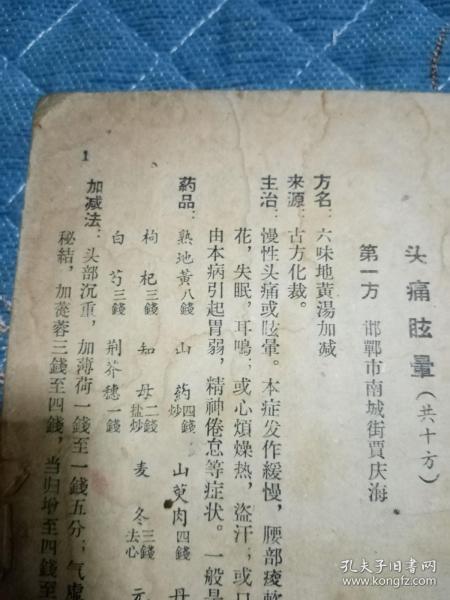 头痛眩暈(共十方)
第一方 邯鄲市南城街賈庆海
方名:六味地黃湯加减
来源:古方化裁。
主治:慢性头痛或眩暈。本症发作緩慢,腰部痠軟
花,失眠,耳鳴;或心煩燥热,盜汗;或口
由本病引起胃弱,精神倦怠等症状。一般是
药品:熟地黃八錢 山药四錢炒 山萸肉四錢 丹
枸杞三錢 知母二錢盐炒 麦冬三錢去心 元
白芍三錢 荆芥穗一錢
加减法:头部沉重,加薄荷一錢至一錢五分;气虛
秘結,加蓯蓉三錢至四錢,当归增至四錢至
1
孔夫子旧书网